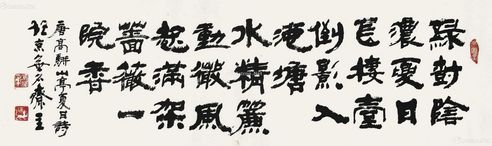 緑樹陰
濃夏日
長樓臺
倒影入
池塘
水精簾
動微風
起滿架
薔薇一
院香
唐高駢山亭夏日詩
於京齋王